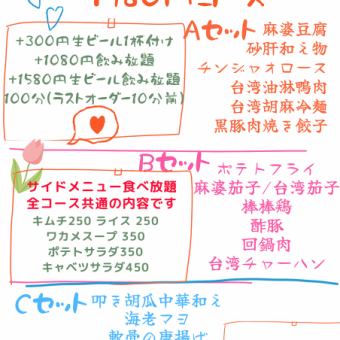 +300円生ビール1杯付け
+1080円飲み放題
+1580円生ビール飲み放題
100分(ラストオーダー10分前)
Aセット 麻婆豆腐
砂肝和え物
チンジャオロース
台湾油淋鴨肉
台湾胡麻冷麺
黒豚肉焼き餃子
Bセット ポテトフライ
サイドメニュー食べ放題
全コース共通の内容です
キムチ250 ライス 250
ワカメスープ 350
ポテトサラダ350
キャベツサラダ450
麻婆茄子/台湾茄子
棒棒鶏
酢豚
回鍋肉
台湾チャーハン
Cセット 叩き胡瓜中華和え
海老マヨ
軟骨の唐揚げ